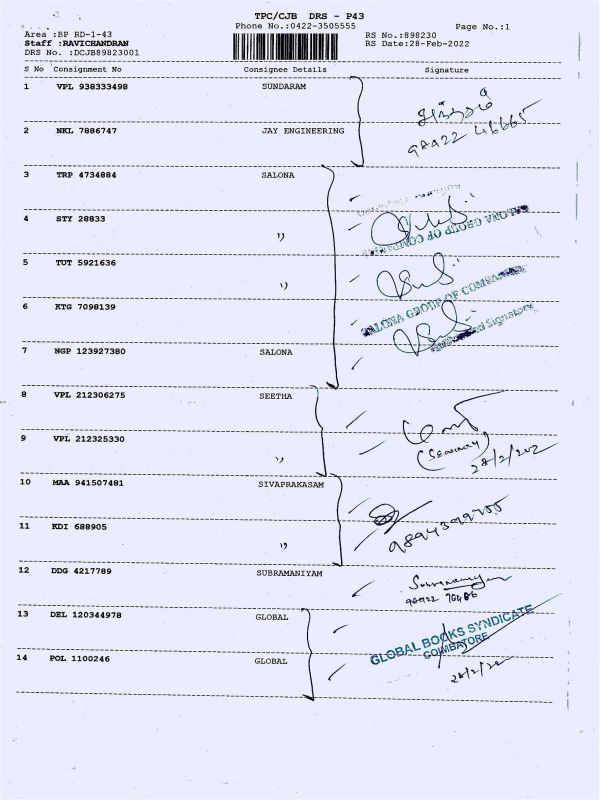 TPC/CJB DRS - P43
Phone No.:0422-3505555
Page No.:1
Area :BP RD-1-43
RS No.:898230
Staff :RAVICHANDRAN
RS Date:28-Feb-2022
DRS No. :DCJB89823001
S No Consignment No Consignee Details Signature
1 VPL 938333498 SUNDARAM
2 NKL 7886747 JAY ENGINEERING
98422 46665
3 TRP 4734884 SALONA
4 STY 28833 "
SALONA GROUP OF COMPANIES
5 TUT 5921636 "
SALONA GROUP OF COMPANIES
6 KTG 7098139
Authorised Signatory
7 NGP 123927380 SALONA
8 VPL 212306275 SEETHA
9 VPL 212325330 "
28/2/202
10 MAA 941507481 SIVAPRAKASAM
11 KDI 688905 "
12 DDG 4217789 SUBRAMANIYAM
Subramaniyam
13 DEL 120344978 GLOBAL
GLOBAL BOOKS SYNDICATE
COIMBATORE
14 POL 1100246 GLOBAL
28/2/22